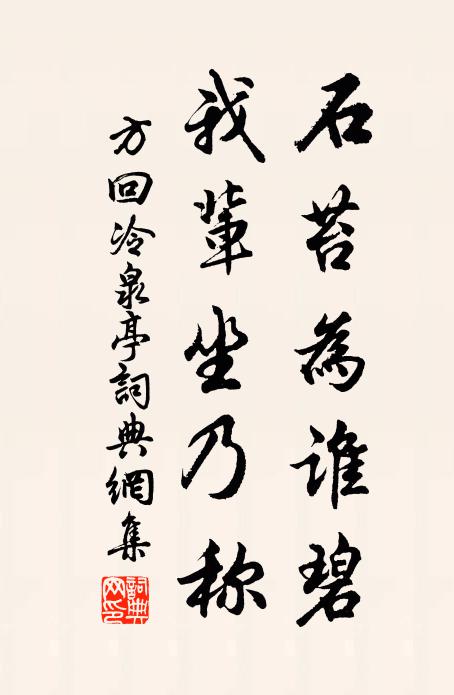 石苔為誰碧
我輩坐乃称
方回冷泉亭詞典網集
詞典網印